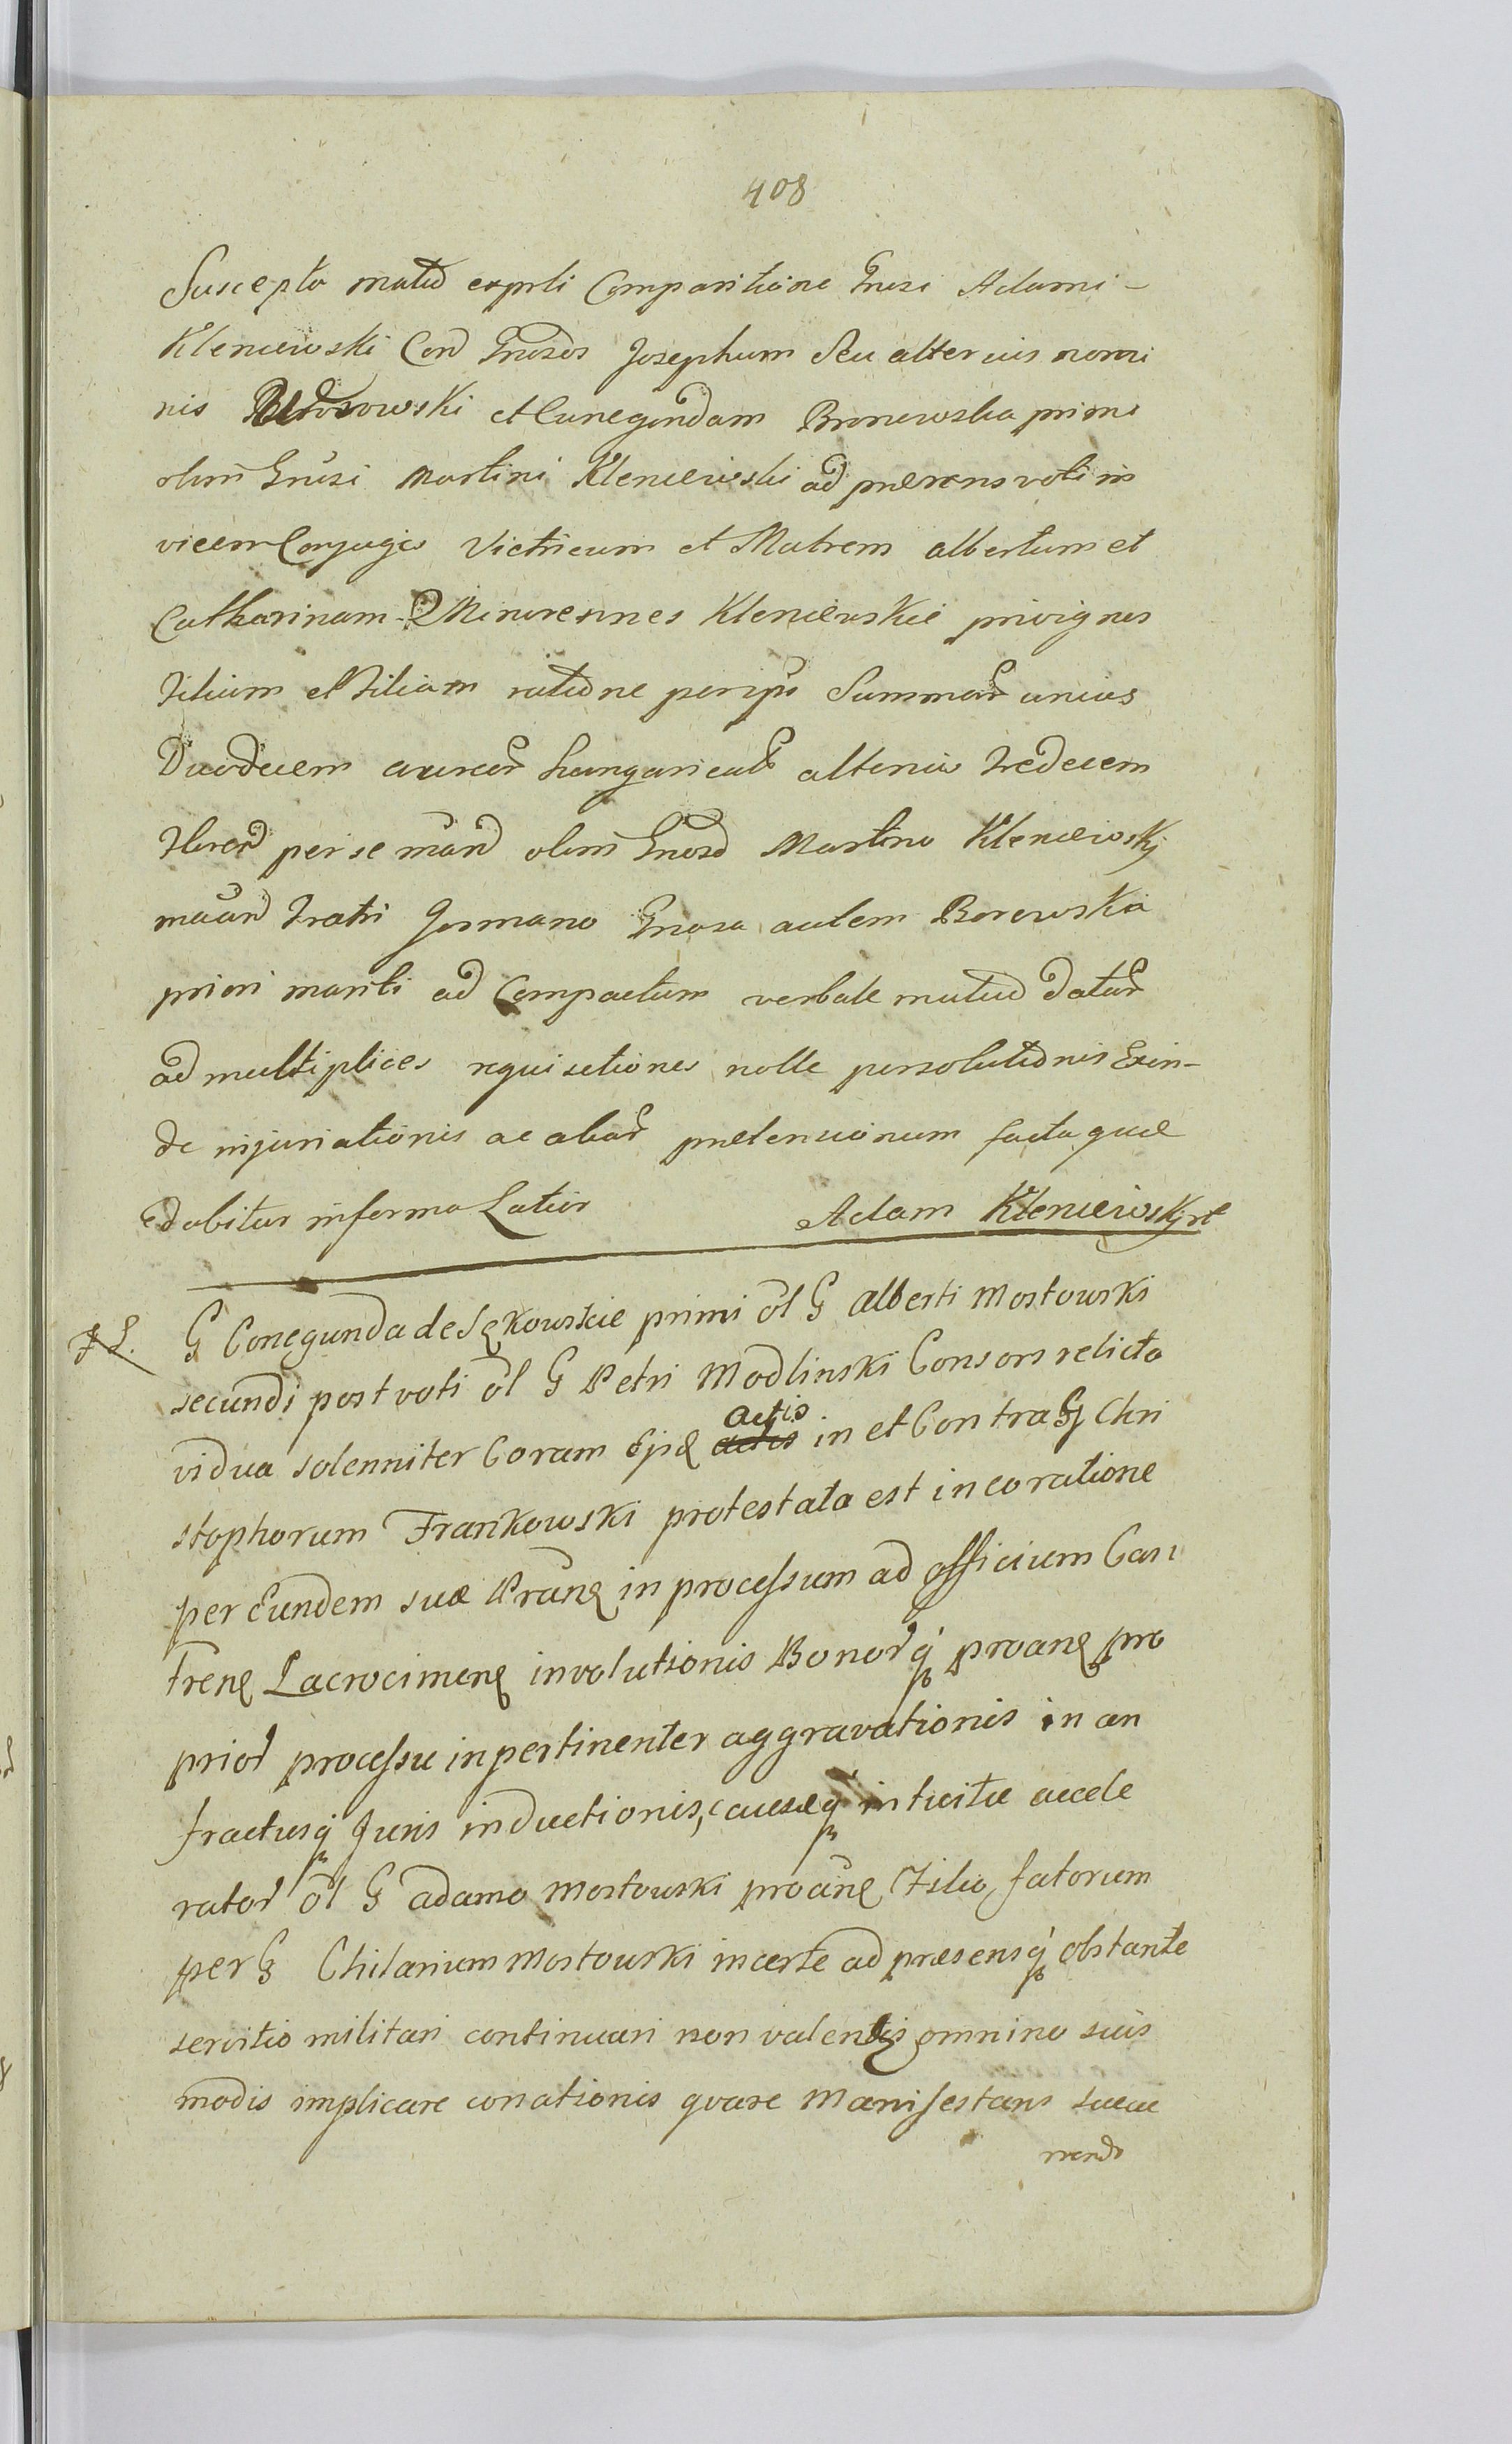 408
Suscepta matūō exprti Comparitione Gnrsi Adami -
Kleniewski Con Gnrsos Josephum seu alterius nomi
nis owski et Cunegundam Bronewska primi
olim Gnrsi Martini Kleniewski ad praesens voti in
vicem Conjuges Victricum et Matrem albertum et
Catharinam Minorennes Kleniewskie privignos
Filium et Filiam ratione Summar unius
Duodecem aureor hungarical alterius tredecem
Floren per se olim Gnoso Martino Kleniewskj
Fratri Germano Gnosa autem Borewska
priori mariti ad Compactum verbale mutuo datar
ad multiplices requisitiones nolle persolutionis Exin-
de injuriationis ac aliar praetensionum facta quae
dabitur in forma Latior Adam Kleniewskj
G Conegunda de Sękowskie primi ol G Alberti Mostowski
secundi post voti ol G Petri Modlinski Consors relicta
vidua solenniter Coram Ejsdę actis actis in et Contra G Chri
stophorum Frankowski protestata est in eo ratione
per Eundem suae Pranę in processum ad officium Cas
trenę Lacrocimenę involutionis Bonorq proanę pro
prior processu inpertinenter aggravationis in an
fractusq Juris inductionis, causaeq intuitu accele
rator ol G adamo Mostowski proanę Filio, fatorum
per G Chilarium Mostowski incerte ad praesensq obstante
servitio militari continuari non valentis omnino suis
modis implicare conationis quare Manifestans suae
nendo